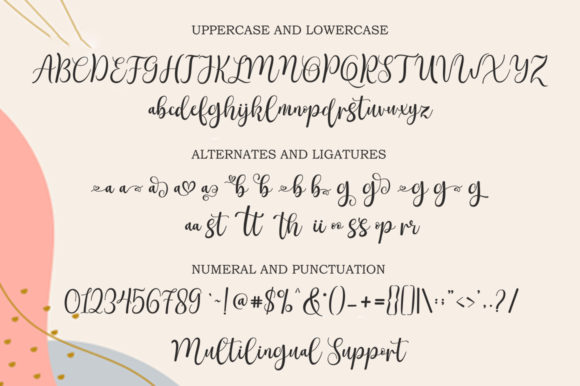 UPPERCASE AND LOWERCASE
ABCDEFGHIJKLMNOPQRSTUVWXYZ
abcdefghijklmnopqrstuvwxyz
ALTERNATES AND LIGATURES
a a a a a b b b b g g g g g
aa st tt th ii oo ss op rr
NUMERAL AND PUNCTUATION
0123456789`~!@#$%^&*()_-+={}[]|\:;"<>',.?/
Multilingual Support